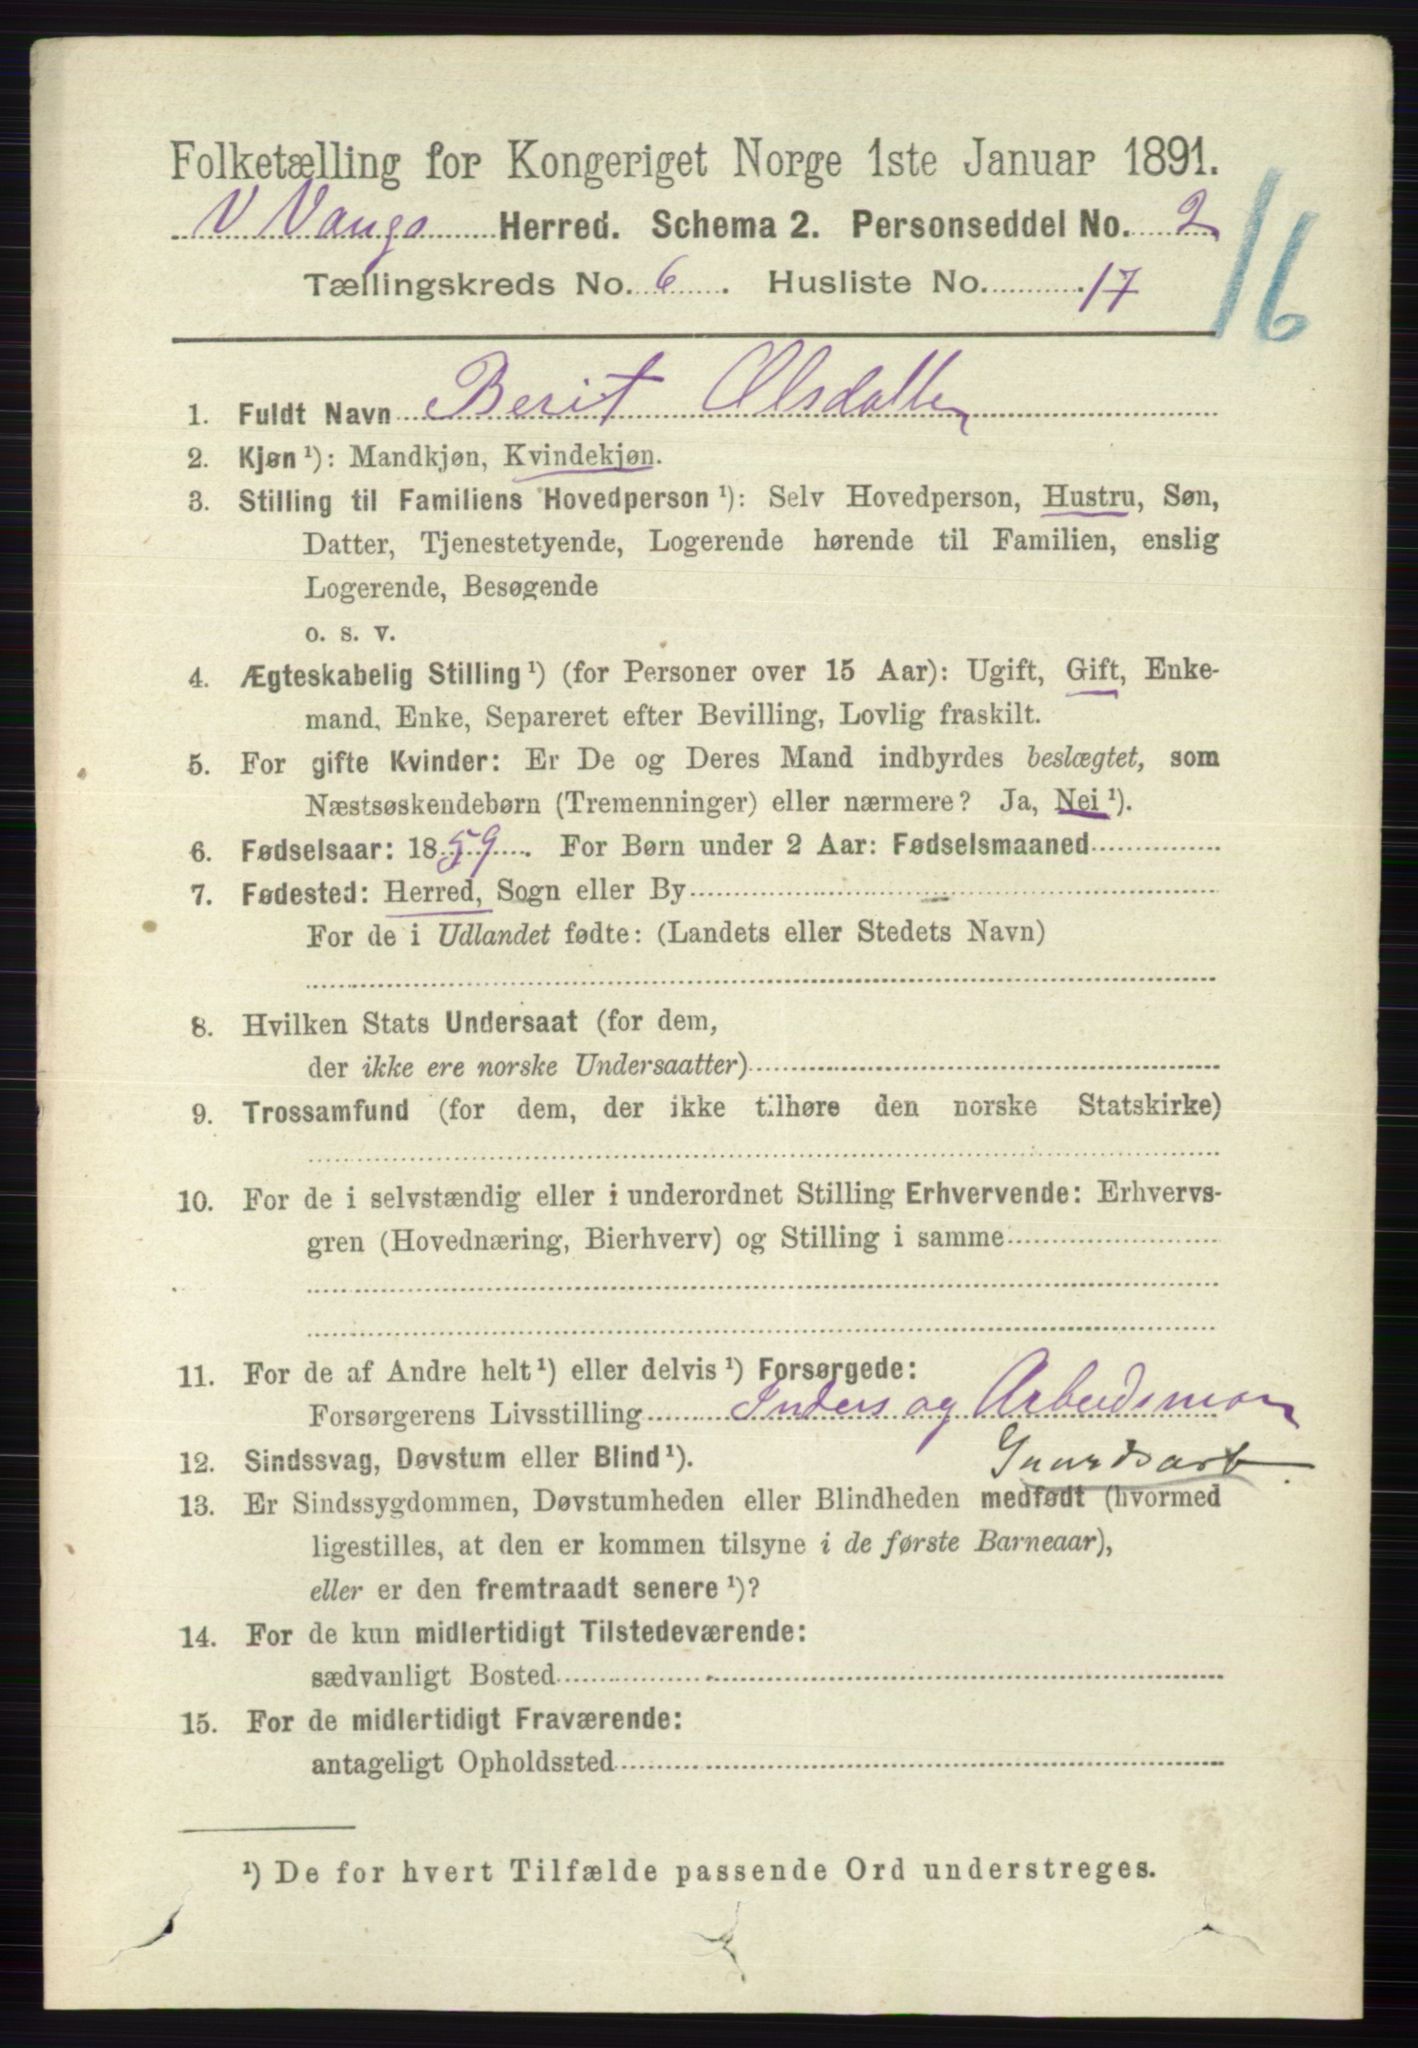 Folketælling for Kongeriget Norge 1ste Januar 1891.
V Vangs Herred. Schema 2. Personseddel No. 2
Tællingskreds No. 6. Husliste No. 17
16
1. Fuldt Navn Berit Olsdatter
2. Kjøn ¹): Mandkjøn, Kvindekjøn.
3. Stilling til Familiens Hovedperson ¹): Selv Hovedperson, Hustru, Søn,
Datter, Tjenestetyende, Logerende hørende til Familien, enslig
Logerende, Besøgende
o. s. v.
4. Ægteskabelig Stilling ¹) (for Personer over 15 Aar): Ugift, Gift, Enke-
mand, Enke, Separeret efter Bevilling, Lovlig fraskilt.
5. For gifte Kvinder: Er De og Deres Mand indbyrdes beslægtet, som
Næstsøskendebørn (Tremenninger) eller nærmere? Ja, Nei ¹).
6. Fødselsaar: 1859. For Børn under 2 Aar: Fødselsmaaned
7. Fødested: Herred, Sogn eller By
For de i Udlandet fødte: (Landets eller Stedets Navn)
8. Hvilken Stats Undersaat (for dem,
der ikke ere norske Undersaatter)
9. Trossamfund (for dem, der ikke tilhøre den norske Statskirke)
10. For de i selvstændig eller i underordnet Stilling Erhvervende: Erhvervs-
gren (Hovednæring, Bierhverv) og Stilling i samme
11. For de af Andre helt ¹) eller delvis ¹) Forsørgede:
Forsørgerens Livsstilling Inders og Arbeidsman
12. Sindssvag, Døvstum eller Blind ¹).
13. Er Sindssygdommen, Døvstumheden eller Blindheden medfødt (hvormed
ligestilles, at den er kommen tilsyne i de første Barneaar),
eller er den fremtraadt senere ¹)?
14. For de kun midlertidigt Tilstedeværende:
sædvanligt Bosted
15. For de midlertidigt Fraværende:
antageligt Opholdssted
¹) De for hvert Tilfælde passende Ord understreges.